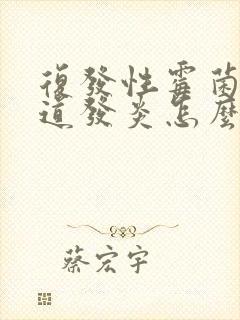 復發性霉菌
道發炎怎麼
蔡宏宇